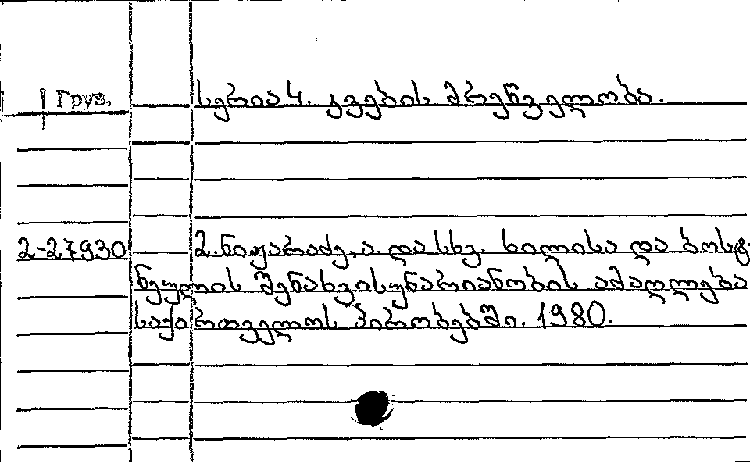 Груз.
სერია 4. კვების მრეწველობა.
2-27930 2. ნიჟარაძე, ა. და სხვ. ხილისა და ბოსტ-
ნეულის შენახვისუნარიანობის ამაღლება
საქართველოს პირობებში. 1980.